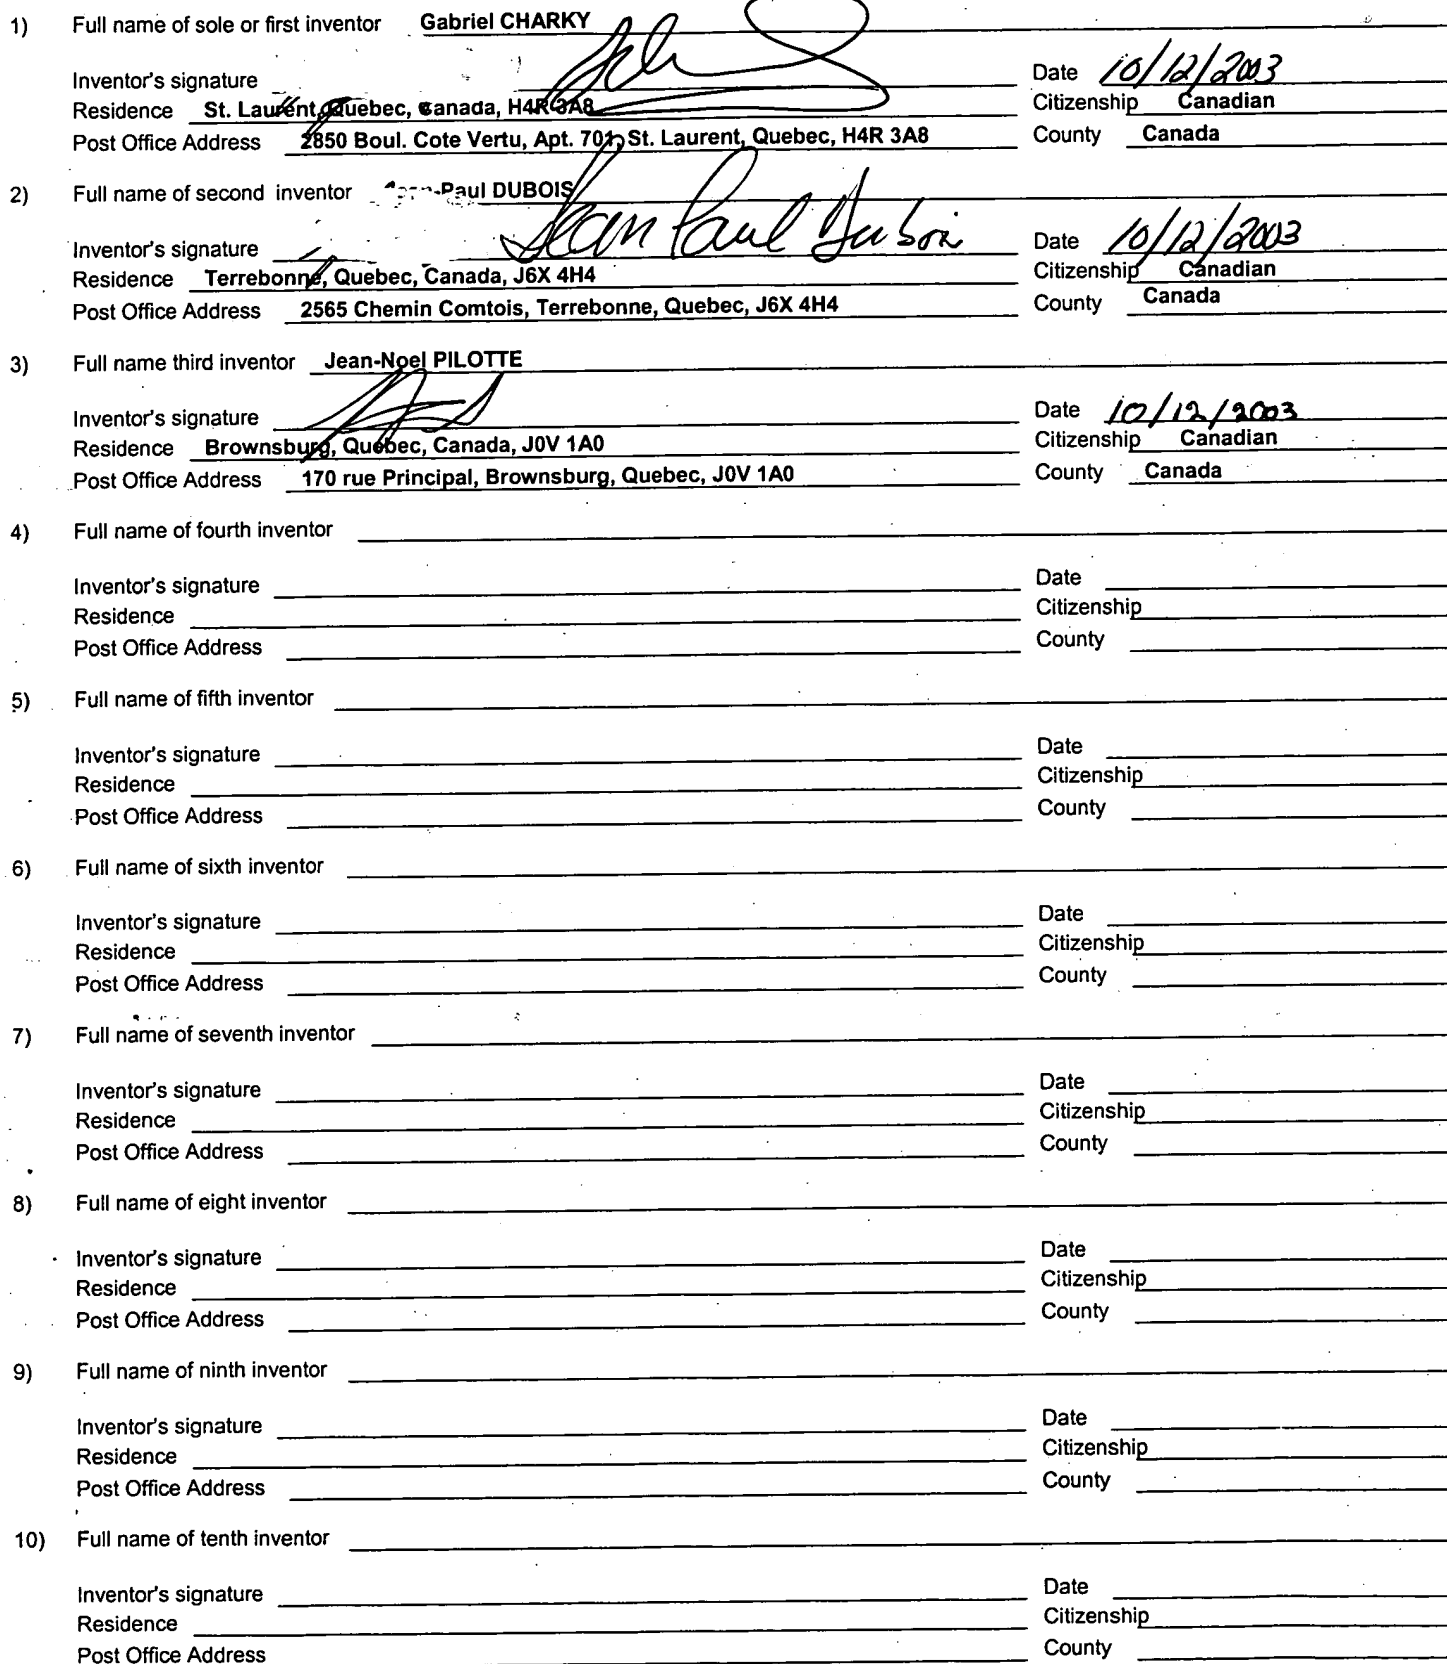 1) Full name of sole or first inventor Gabriel CHARKY
Inventor's signature Date 10/12/2003
Residence St. Laurent, Quebec, Canada, H4R 3A8 Citizenship Canadian
Post Office Address 2850 Boul. Cote Vertu, Apt. 701, St. Laurent, Quebec, H4R 3A8 County Canada
2) Full name of second inventor -Paul DUBOIS
Inventor's signature Jean Paul Dubois Date 10/12/2003
Residence Terrebonne, Quebec, Canada, J6X 4H4 Citizenship Canadian
Post Office Address 2565 Chemin Comtois, Terrebonne, Quebec, J6X 4H4 County Canada
3) Full name third inventor Jean-Noel PILOTTE
Inventor's signature Date 10/12/2003
Residence Brownsburg, Quebec, Canada, J0V 1A0 Citizenship Canadian
Post Office Address 170 rue Principal, Brownsburg, Quebec, J0V 1A0 County Canada
4) Full name of fourth inventor
Inventor's signature Date
Residence Citizenship
Post Office Address County
5) Full name of fifth inventor
Inventor's signature Date
Residence Citizenship
Post Office Address County
6) Full name of sixth inventor
Inventor's signature Date
Residence Citizenship
Post Office Address County
7) Full name of seventh inventor
Inventor's signature Date
Residence Citizenship
Post Office Address County
8) Full name of eight inventor
Inventor's signature Date
Residence Citizenship
Post Office Address County
9) Full name of ninth inventor
Inventor's signature Date
Residence Citizenship
Post Office Address County
10) Full name of tenth inventor
Inventor's signature Date
Residence Citizenship
Post Office Address County